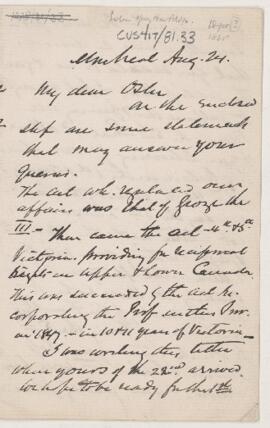 CUS417/81.33
Montreal Aug. 24.
My dear Osler
on the enclosed
slip are some statements
that may answer your
queries.
The act wh. regulated our
affairs was that of George the
III - Then came the act 4th & 5th
Victoria providing for reciprocal
rights in Upper & Lower Canada.
This was succeeded by the act
corporating the Prof in this Prov.
in 1847 - in 10 & 11 years of Victoria -
I was working this letter
when yours of the 22nd arrived.
We hope to be ready for the 1st